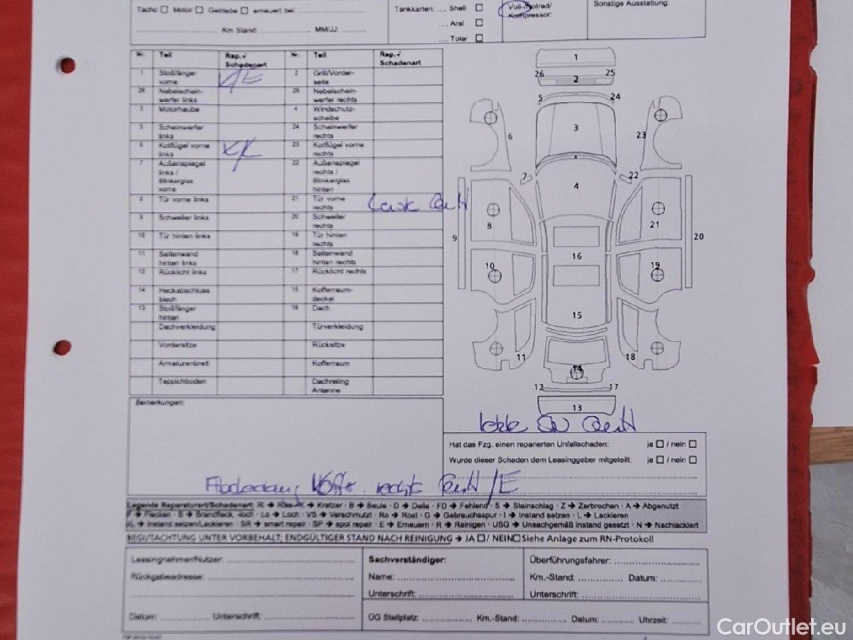 Tacho □ Motor □ Getriebe □ erneuert bei:
Km Stand: MM/JJ:
Tankkarten: ... Shell □
... Aral □
... Total □
Kompressor:
Sonstige Ausstattung:
Nr. Teil Rep./Schadenart Nr. Teil Rep./Schadenart
1 Stoßfänger vorne K/E 2 Grill/Vorderseite
26 Nebelscheinwerfer links 25 Nebelscheinwerfer rechts
3 Motorhaube 4 Windschutzscheibe
5 Scheinwerfer links 24 Scheinwerfer rechts
6 Kotflügel vorne links 23 Kotflügel vorne rechts
7 Außenspiegel links / Blinkerglas vorne 22 Außenspiegel rechts/ Blinkerglas hinten
8 Tür vorne links 21 Tür vorne rechts
9 Schweller links 20 Schweller rechts
10 Tür hinten links 19 Tür hinten rechts
11 Seitenwand hinten links 18 Seitenwand hinten rechts
12 Rücklicht links 17 Rücklicht rechts
14 Heckabschluss blech 15 Kofferraumdeckel
13 Stoßfänger hinten 16 Dach
Dachverkleidung Türverkleidung
Vordersitze Rücksitze
Armaturenbrett Kofferraum
Teppichboden Dachreling Antenne
1
26 25
2
5 24
3
6 23
7 22
4
8 21
9 20
16
10 19
15
11 18
14
12 17
13
Bemerkungen:
Hat das Fzg. einen reparierten Unfallschaden: ja □ / nein □
Wurde dieser Schaden dem Leasinggeber mitgeteilt: ja □ / nein □
rechts /E
Legende Reparaturart/Schadenart: RI → Riss K → Kratzer · B → Beule · D → Delle · FD → Fehlend · S → Steinschlag · Z → Zerbrochen · A → Abgenutzt
F → Flecken · Loch · VS → Verschmutzt · Ro → Rost · G → Gebrauchsspur · I → Instand setzen · L → Lackieren
IL → Instand setzen/Lackieren · SR → smart repair · SP → spot repair · E → Erneuern · R → Reinigen · USG → Unsachgemäß instand gesetzt · N → Nachlackiert
BEGUTACHTUNG UNTER VORBEHALT; ENDGÜLTIGER STAND NACH REINIGUNG → JA □/ NEIN□Siehe Anlage zum RN-Protokoll
Leasingnehmer/Nutzer: Sachverständiger: Überführungsfahrer:
Rückgabeadresse: Name: Km.-Stand: Datum:
Unterschrift: Unterschrift:
Datum: Unterschrift: ÜG Stellplatz: Km.-Stand: Datum: Uhrzeit:
CarOutlet.eu